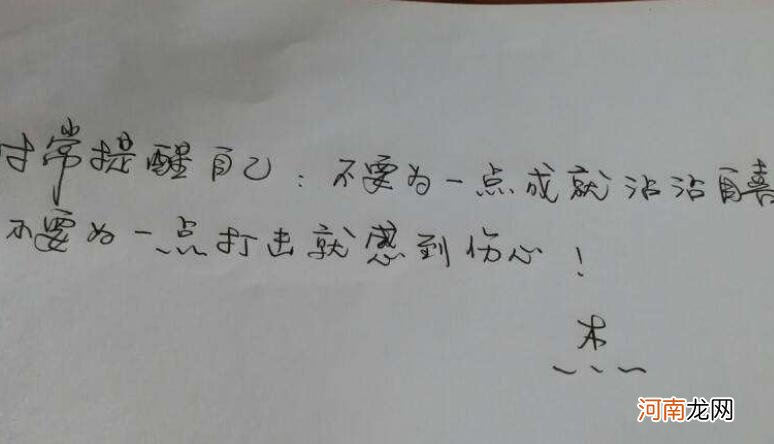 时常提醒自己：不要为一点成就沾沾自喜
不要为一点打击就感到伤心！
木
河南龙网